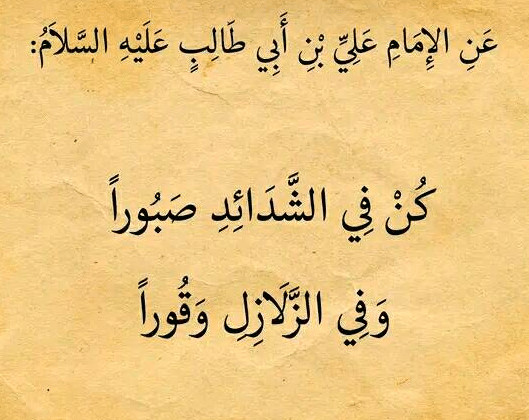 عَنِ الإِمَامِ عَلِيِّ بْنِ أَبِي طَالِبٍ عَلَيْهِ السَّلاَمُ:
كُنْ فِي الشَّدَائِدِ صَبُوراً
وَفِي الزَّلَازِلِ وَقُوراً